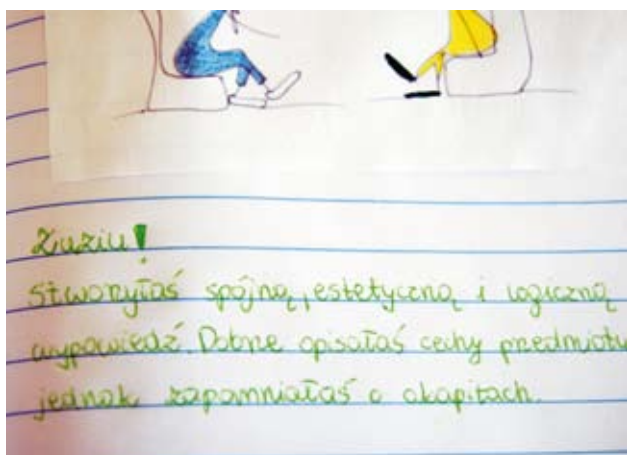 Zuziu!
Stworzyłaś spójną, estetyczną i logiczną
wypowiedź. Dobrze opisałaś cechy przedmiotu
jednak zapomniałaś o akapitach.